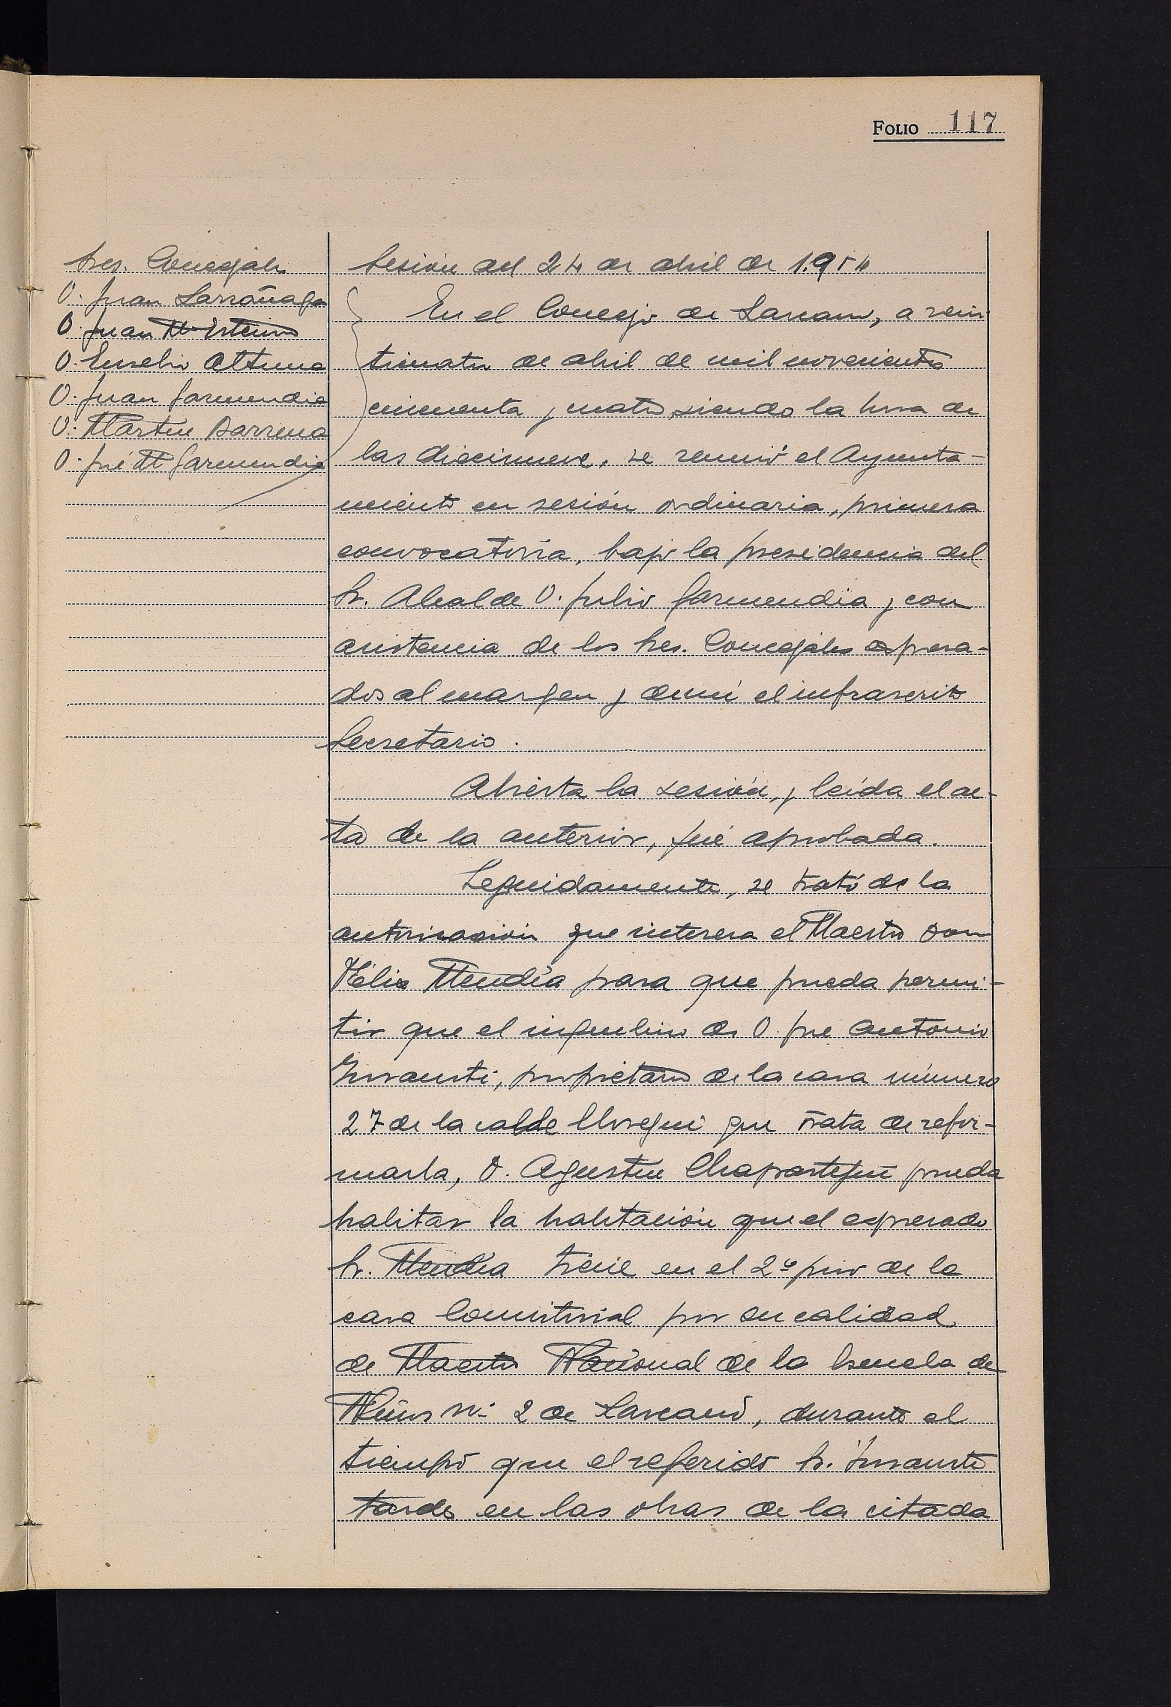 FOLIO 117
Sres. Concejales
D. Juan Larrañaga
D. Juan Mª
D. Eusebio Altuna
D. Juan Garmendia
D. Martin Barrena
D. José Mª Garmendia
Sesión del 24 de abril de 1.954
En el Concejo de Lazcano, a vein-
ticuatro de abril de mil novecientos
cincuenta y cuatro, siendo la hora de
las diecinueve, se reunió el Ayunta-
miento en sesión ordinaria, primera
convocatoria, bajo la presidencia del
Sr. Alcalde D. Julio Garmendia y con
asistencia de los Sres. Concejales expresa-
dos al margen y de mí el infrascrito
Secretario.
Abierta la sesión, y leída el ac-
ta de la anterior, fué aprobada.
Seguidamente, se trató de la
autorización que interesa el Maestro Don
Félix Mendia para que pueda permi-
tir que el inquilino de D. José Antonio
Insausti, propietario de la casa número
27 de la calle Elosegui que trata de refor-
marla, D. Agustin Chapartegui pueda
habitar la habitación que el expresado
Sr. Mendia tiene en el 2º piso de la
casa Consistorial por su calidad
de Maestro Nacional de la Escuela de
Niños nº 2 de Lazcano, durante el
tiempo que el referido Sr. Insausti
tarde en las obras de la citada